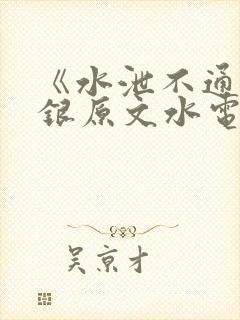 《水泄不通
银原文水電
吴京才